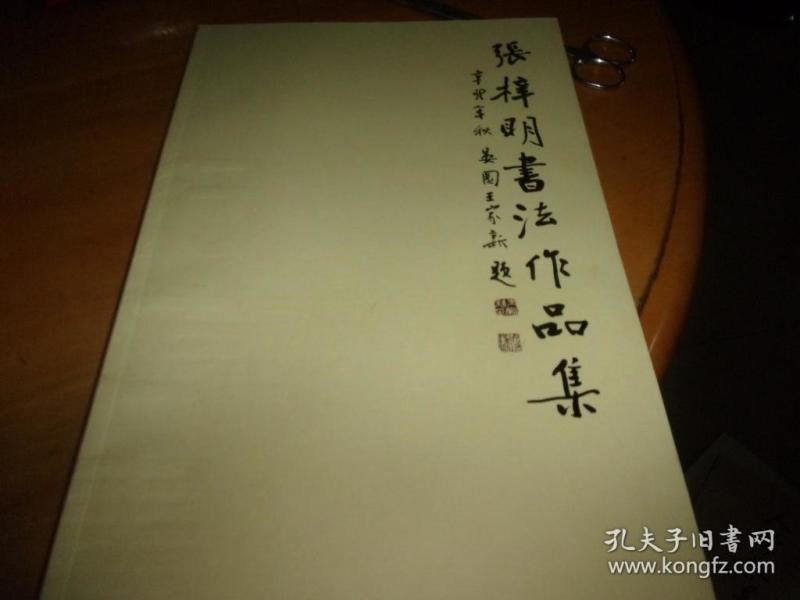 張梓明書法作品集
辛卯年秋 晏園王家新題
孔夫子旧書网
www.kongfz.com